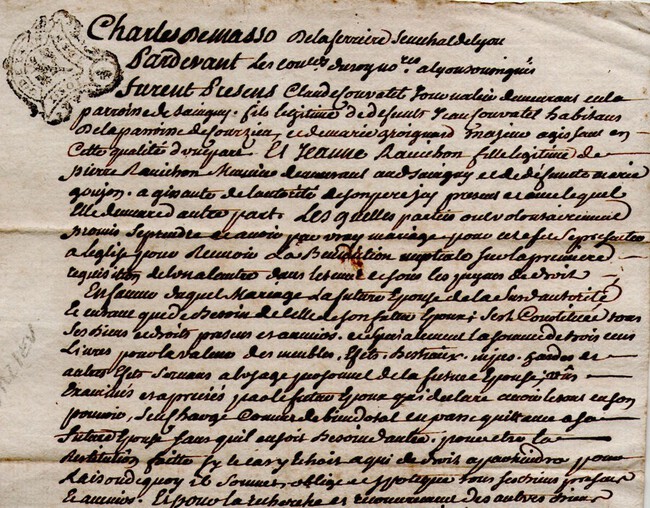 Charles Demasso Delaferriere senechal delyon
Pardevant Les con.ers du roy no.res a lyon soussignés
furent Presens Claude Jouvatel Journalier demeurant en la
parroisse de savigny fils legitime de deffunt Jean Jouvatel habitant
De la paroisse de sourzieu et de marie majeur agissant en
Cette qualité d'une part. Et Jeanne Ravichon fille legitime de
pierre Ravichon demeurant aud savigny et de deffunte marie
goujon. agissante de l'autorité de son pere icy present et avec lequel
Elle demeure d'autre part. Les quelles parties ont volontairement
promis se prendre et avoir par vray mariage pour cet effet se presenter
a l'eglise pour Recevoir La Benediction nuptiale sur la premiere
requisition de l'un a l'autre dans le tems et sous les peines de droit
En faveur duquel Mariage La future Epouse de la susd autorité
Et en tant que de Besoin de celle de son futur Epoux; s'est Constituée tous
ses Biens et droits presens et avenir. et specialement la somme de trois cens
Livres pour la valeur des meubles, Effets Bestiaux, linges, hardes et
autres Effets servans a l'usage personnel de la future Epouse,
Examinés et apreciés par le futur Epoux qui declare avoir le tout en son
pouvoir, s'en Charge Comme de bien dotal en passe quittance a sa
future Epouse sans qu'il en soit Besoin d'autre, pour etre la
Restitution faitte sy le cas y Echoit a qui de droit apartiendra pour
Raison de quoy il soumet oblige et ypoteque tous ses biens presens
Et avenir. Et pour la recherche et recouvrement des autres biens